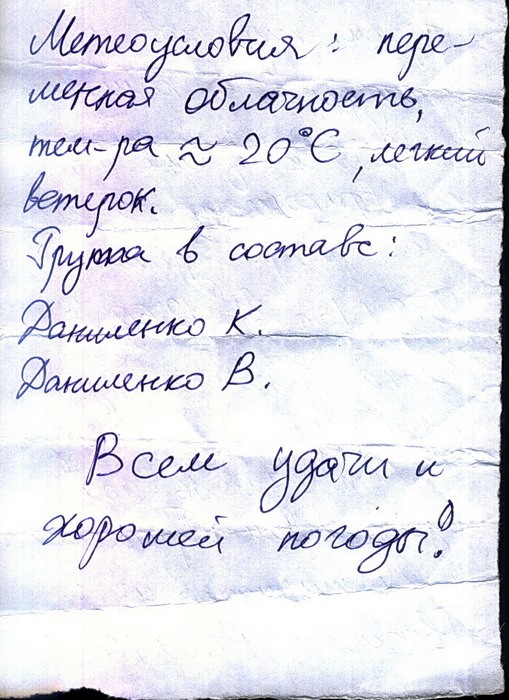 Метеоусловия: пере-
менная облачность,
тем-ра ≈ 20°С, легкий
ветерок.
Группа в составе:
Даниленко К.
Даниленко В.
Всем удачи и
хорошей погоды!